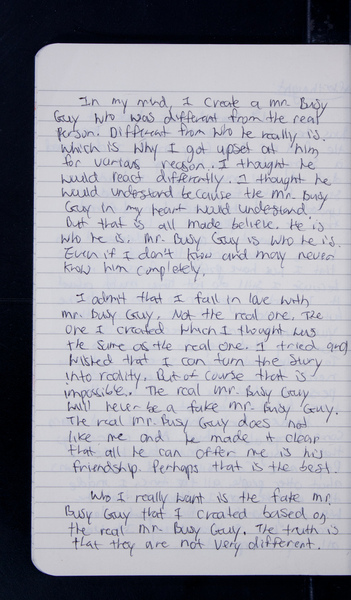 In my mind, I create a Mr. Busy
Guy who was different from the real
person. Different from who he really is.
Which is why I got upset at him
for various reason. I thought he
would react differently. I thought he
would understand because the Mr. Busy
Guy in my heart would understand.
But that is all made believe. He is
who he is. Mr. Busy Guy is who he is.
Even if I don't know and may never
know him completely.
I admit that I fall in love with
Mr. Busy Guy. Not the real one. The
one I created which I thought was
the same as the real one. I tried and
wished that I can turn the story
into reality. But of course that is
impossible. The real Mr. Busy Guy
will never be a fake Mr. Busy Guy.
The real Mr. Busy Guy does not
like me and he made it clear
that all he can offer me is his
friendship. Perhaps that is the best.
Who I really want is the fake Mr.
Busy Guy that I created based on
the real Mr. Busy Guy. The truth is
that they are not very different.